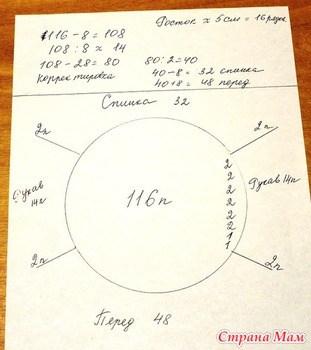 116-8=108
Росток х 5см = 16 рядов
108:8 х 14
108-28=80
80:2=40
Корректировка
40-8= 32 спинка
40+8= 48 перед
Спинка 32
2п
2п
2
2
2
2
2
2
1
1
Рукав 14п
116п
Рукав 14п
2п
2п
Перед 48
Страна Мам